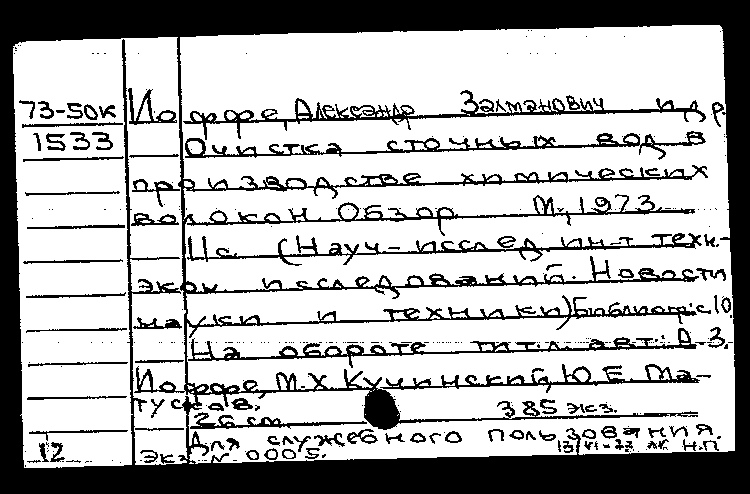 73-50К Иоффе, Александр Залманович и др.
1533 Очистка сточных вод в
производстве химических
волокон. Обзор. М., 1973.
11с. (Науч.-исслед. ин-т техн.-
экон. исследований. Новости
науки и техники) Библиогр.: с. 10
На обороте тит. л. авт.: А. З.
Иоффе, М. Х. Кучинский, Ю. Е. Ма-
тусков.
26 см. 385 экз.
Для служебного пользования.
12 Экз. N. 0005. Н.П